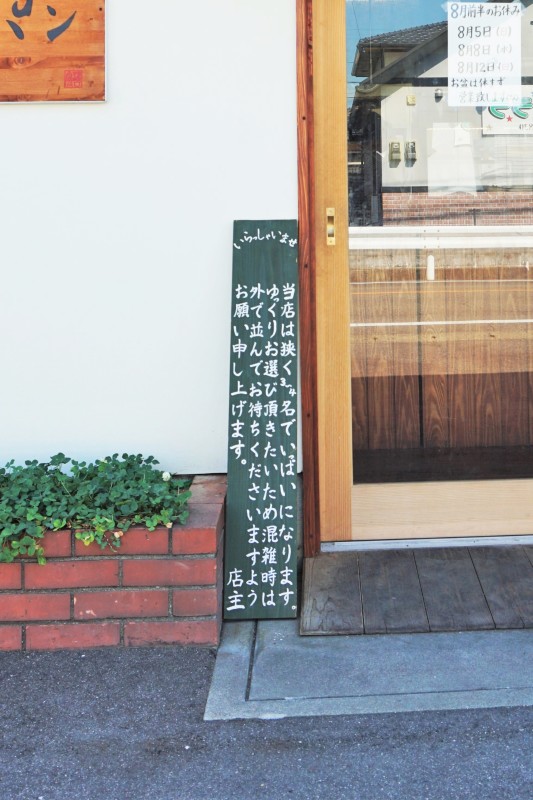 いらっしゃいませ
当店は狭く3〜4名でいっぱいになります。
ゆっくりお選び頂きたいため混雑時は
外で並んでお待ちくださいますよう
お願い申し上げます。
店主
8月前半のお休み
8月5日(月)
8月8日(木)
8月12日(月)
お盆は休まず
営業致します